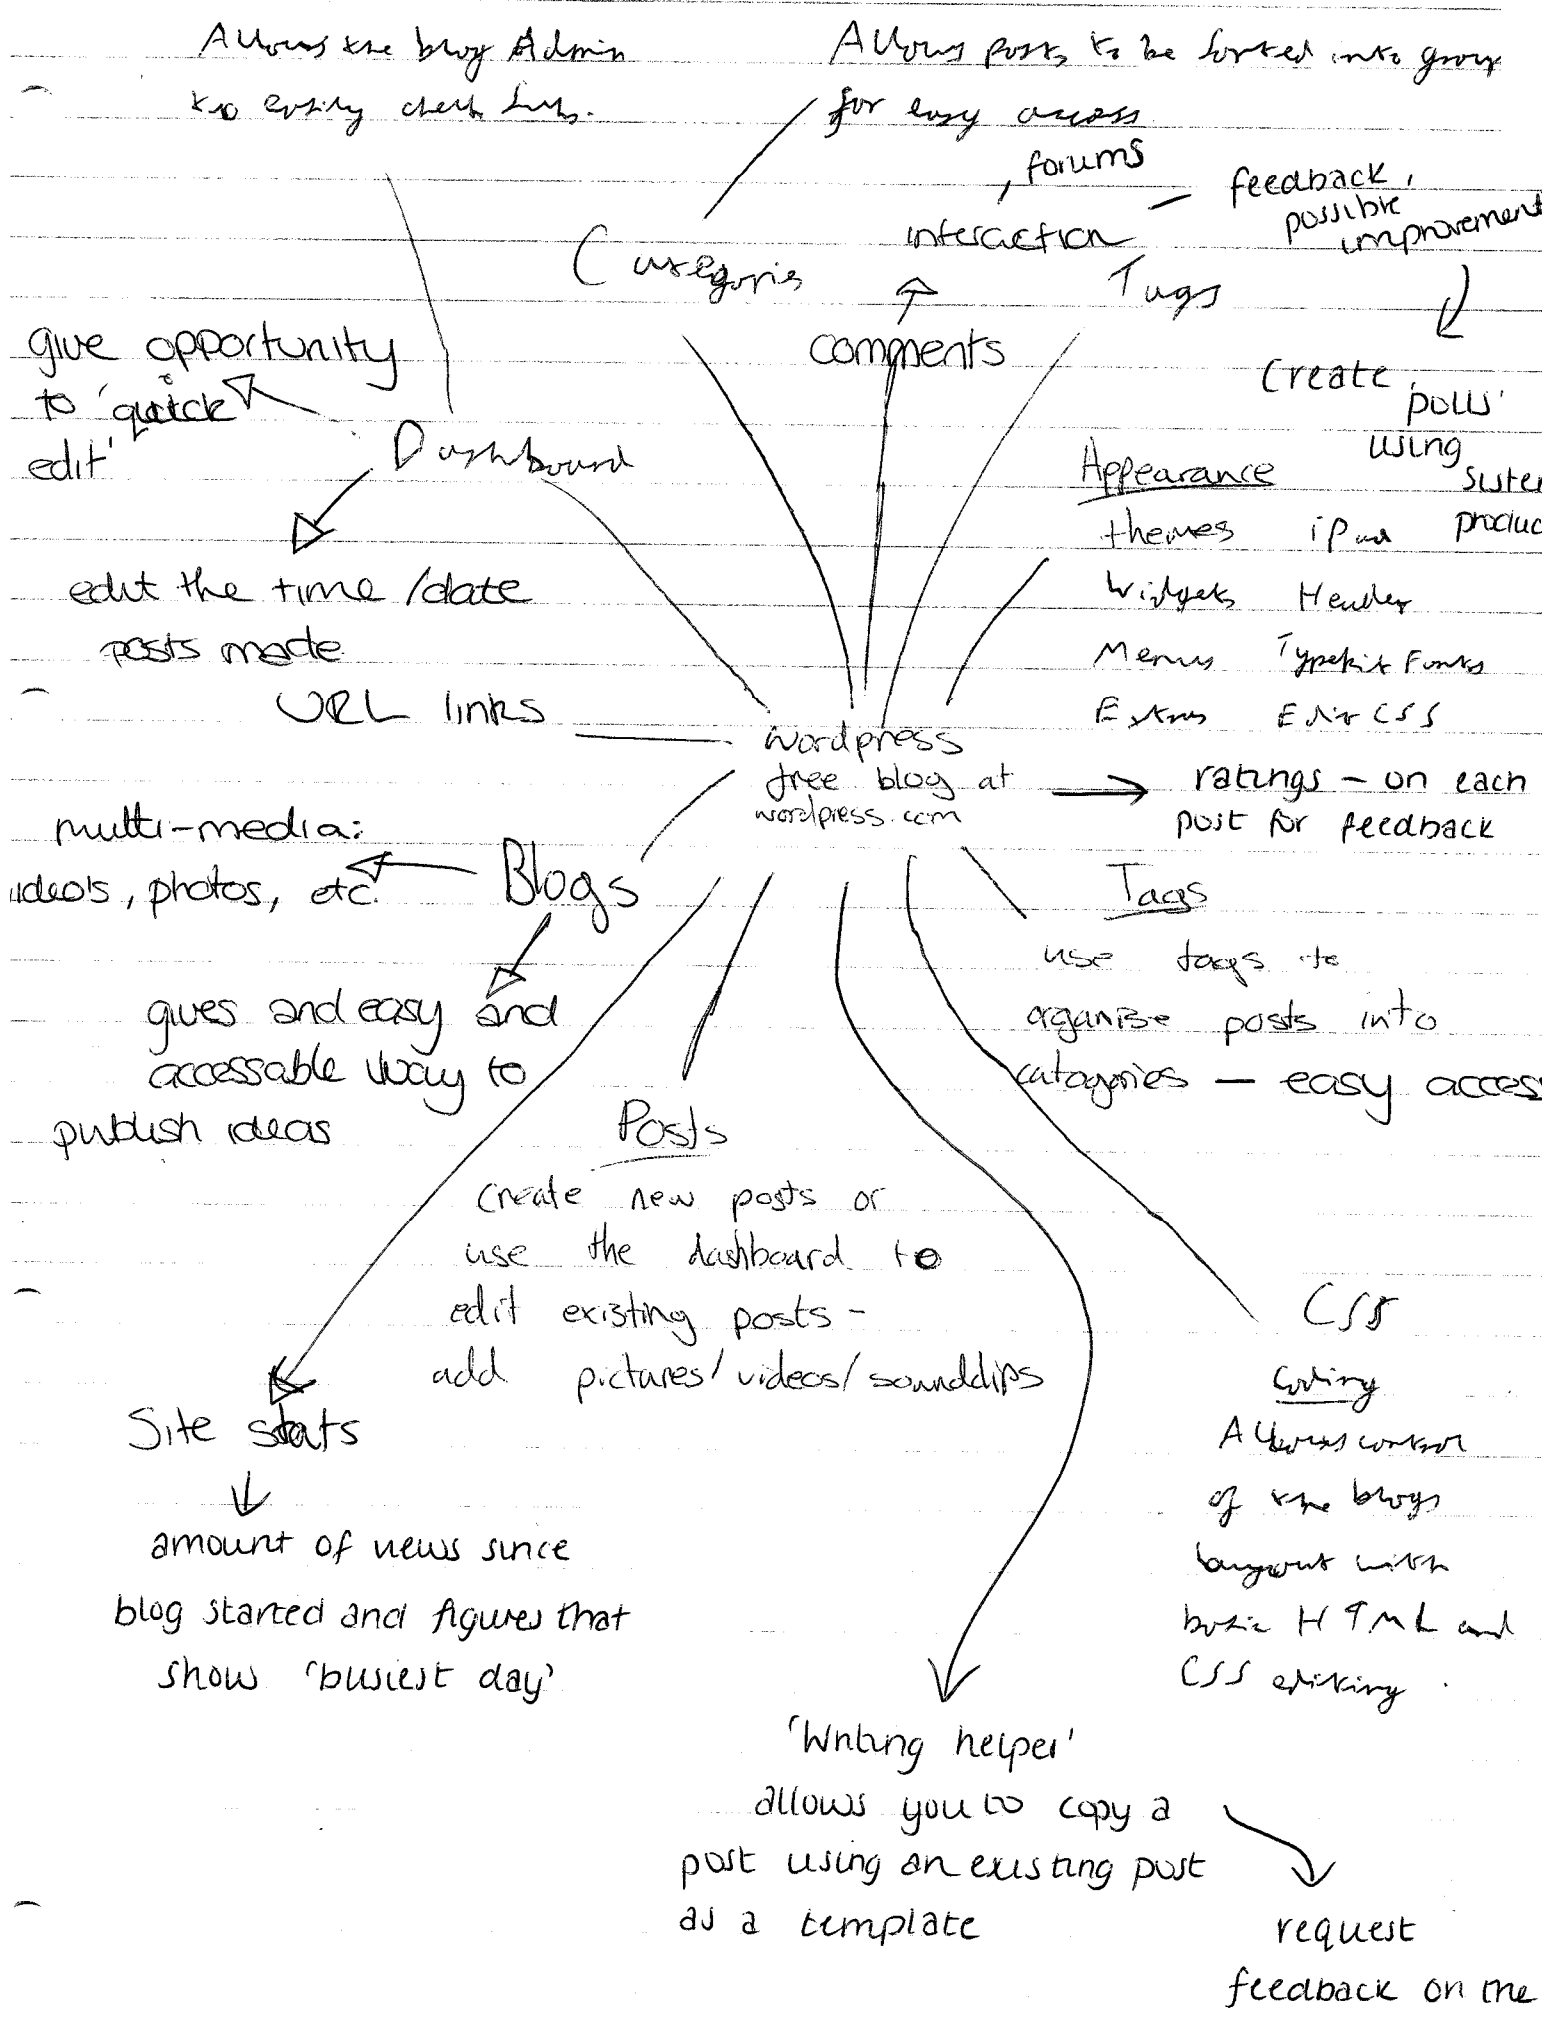 Allows the blog Admin
to easily check
Allows posts to be sorted into group
for easy access
forums
interaction
feedback,
possible
improvement
Categories
Tags
comments
give opportunity
to 'quick
edit'
Dashboard
Create
'polls'
using
sister
produc
edit the time/date
posts made
Appearance
themes iPad
Widgets Header
Menus Typekit Fonts
Extras Edit CSS
URL links
wordpress
free blog at
wordpress.com
ratings – on each
post for feedback
multi-media:
ideo's, photos, etc.
Blogs
gives and easy and
accessable way to
publish ideas
Tags
use tags to
organise posts into
catagories – easy acces
Posts
Create new posts or
use the dashboard to
edit existing posts –
add pictures/videos/soundclips
Site stats
amount of views since
blog started and figures that
show 'busiest day'
CSS
Coding
Allows control
of the blogs
layout with
basic HTML and
CSS editing.
'Writing helper'
allows you to copy a
post using an existing post
as a template
request
feedback on the